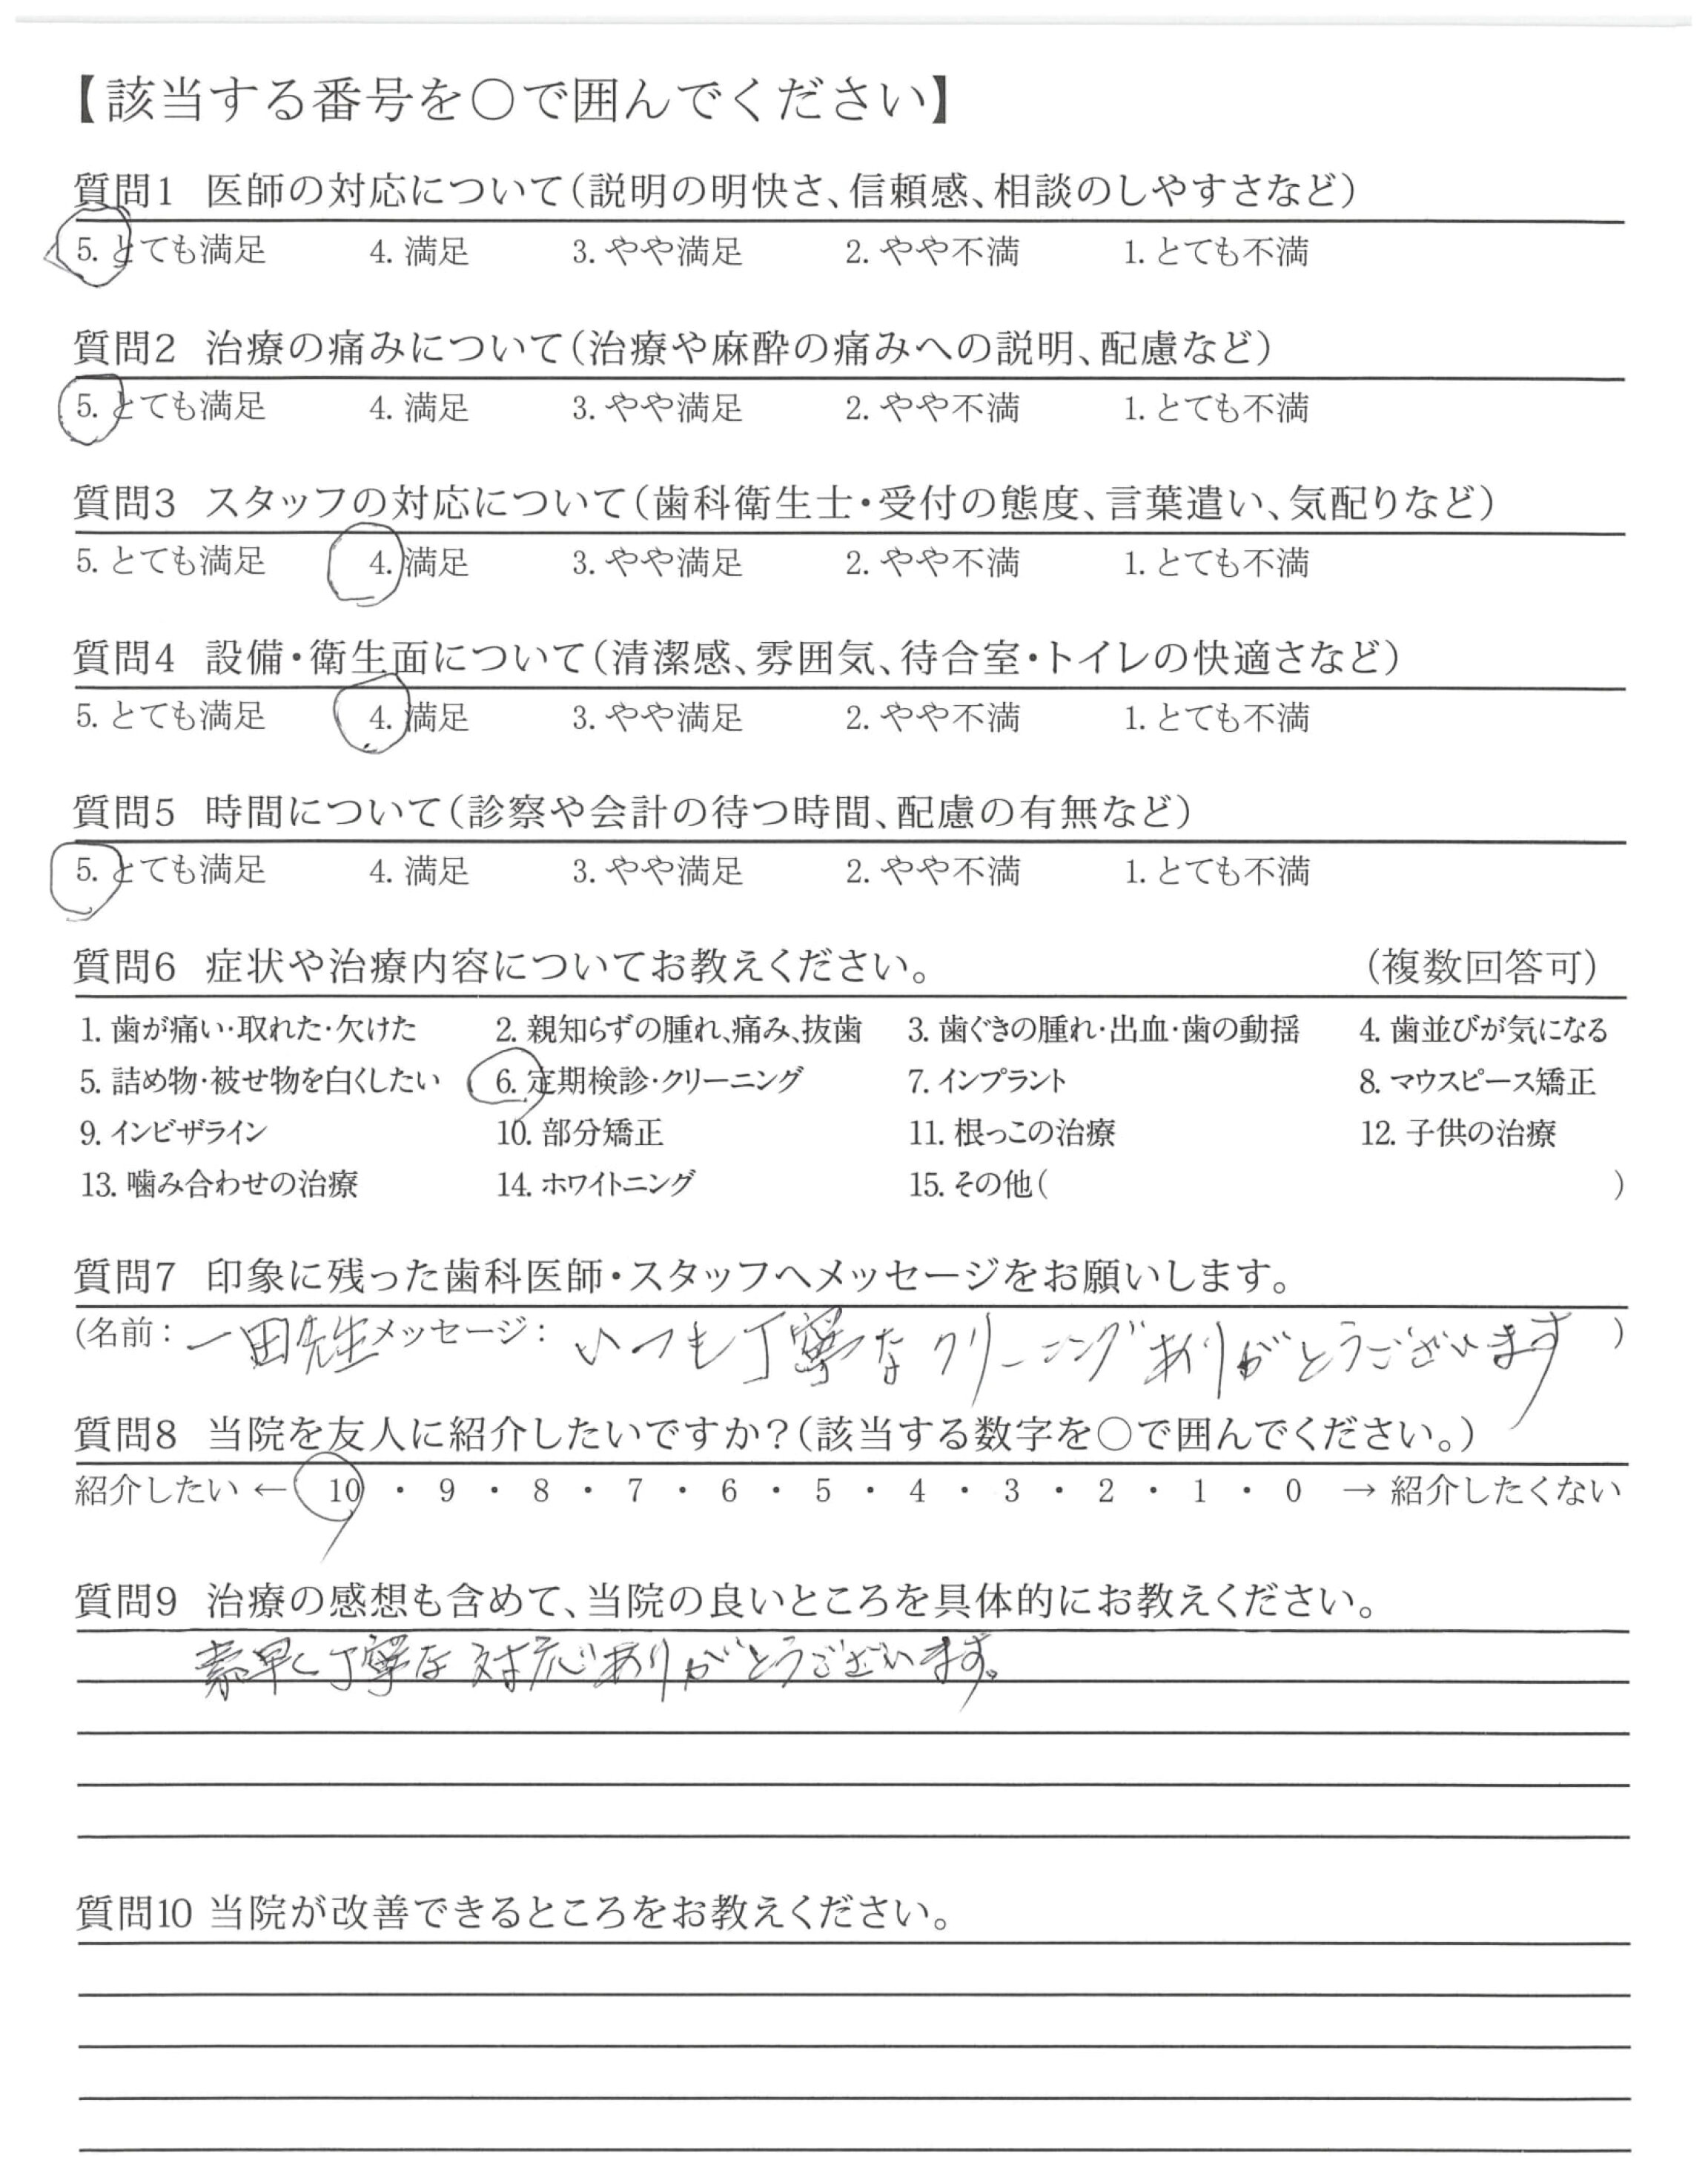 【該当する番号を○で囲んでください】
質問1 医師の対応について（説明の明快さ、信頼感、相談のしやすさなど）
5. とても満足 4. 満足 3. やや満足 2. やや不満 1. とても不満
質問2 治療の痛みについて（治療や麻酔の痛みへの説明、配慮など）
5. とても満足 4. 満足 3. やや満足 2. やや不満 1. とても不満
質問3 スタッフの対応について（歯科衛生士・受付の態度、言葉遣い、気配りなど）
5. とても満足 4. 満足 3. やや満足 2. やや不満 1. とても不満
質問4 設備・衛生面について（清潔感、雰囲気、待合室・トイレの快適さなど）
5. とても満足 4. 満足 3. やや満足 2. やや不満 1. とても不満
質問5 時間について（診察や会計の待つ時間、配慮の有無など）
5. とても満足 4. 満足 3. やや満足 2. やや不満 1. とても不満
質問6 症状や治療内容についてお教えください。 （複数回答可）
1. 歯が痛い・取れた・欠けた 2. 親知らずの腫れ、痛み、抜歯 3. 歯ぐきの腫れ・出血・歯の動揺 4. 歯並びが気になる
5. 詰め物・被せ物を白くしたい 6. 定期検診・クリーニング 7. インプラント 8. マウスピース矯正
9. インビザライン 10. 部分矯正 11. 根っこの治療 12. 子供の治療
13. 噛み合わせの治療 14. ホワイトニング 15. その他（ ）
質問7 印象に残った歯科医師・スタッフへメッセージをお願いします。
（名前：一田先生 メッセージ：いつも丁寧なクリーニングありがとうございます ）
質問8 当院を友人に紹介したいですか？（該当する数字を○で囲んでください。）
紹介したい ← 10 ・ 9 ・ 8 ・ 7 ・ 6 ・ 5 ・ 4 ・ 3 ・ 2 ・ 1 ・ 0 → 紹介したくない
質問9 治療の感想も含めて、当院の良いところを具体的にお教えください。
素早く丁寧な対応ありがとうございます。
質問10 当院が改善できるところをお教えください。